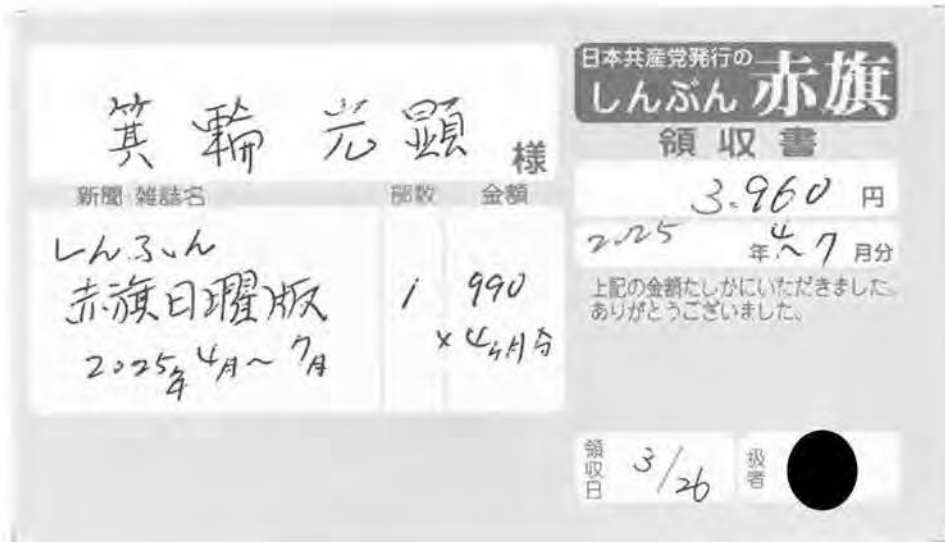 箕輪 光顕 様
新聞・雑誌名 部数 金額
しんぶん
赤旗日曜版 1 990
2025年4月〜7月 ×4ヶ月分
日本共産党発行の
しんぶん赤旗
領収書
3.960円
2025年4〜7月分
上記の金額たしかにいただきました。
ありがとうございました。
領収日 3/26 扱者